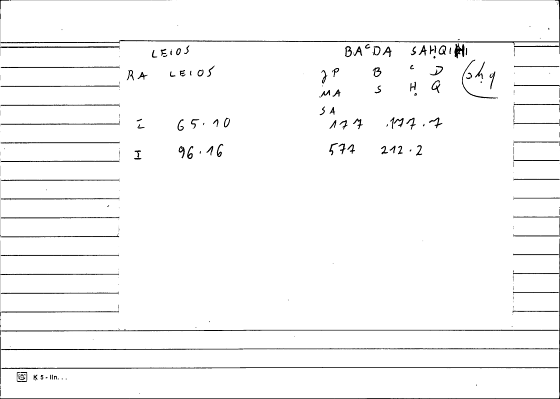 LEIOS BAʿDA SAḤQI
RA LEIOS JP B ʿ D (sḥq
MA S Ḥ Q
SA
I 65.10 177 .177.7
I 96.16 577 212.2
K 5 - lin...